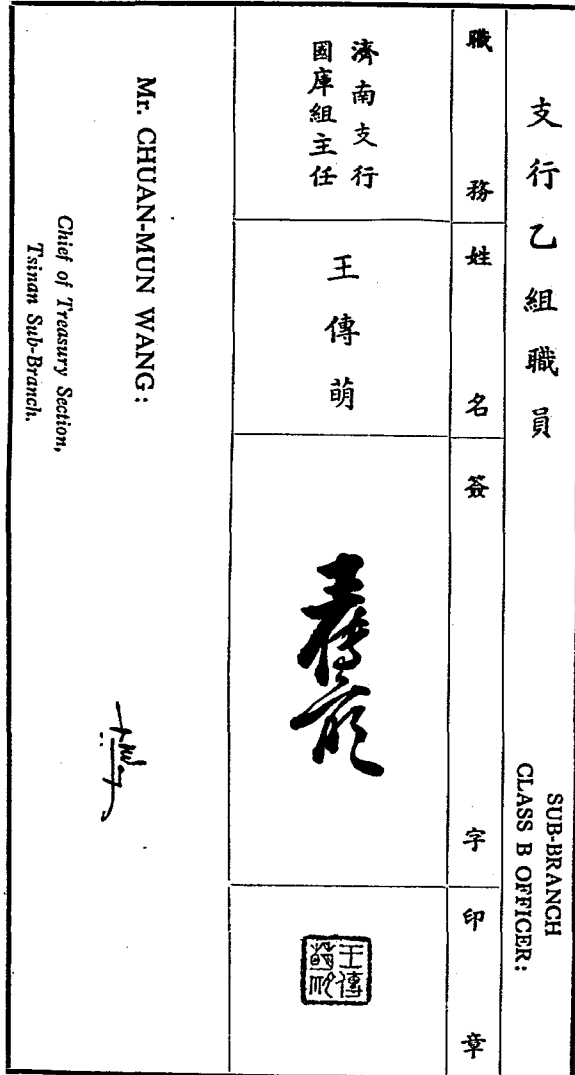 支行乙組職員
SUB-BRANCH
CLASS B OFFICER:
職務
姓名
簽字
印章
濟南支行
國庫組主任
王傳萌
王傳萌
王傳
萌印
Mr. CHUAN-MUN WANG:
Chief of Treasury Section,
Tsinan Sub-Branch.